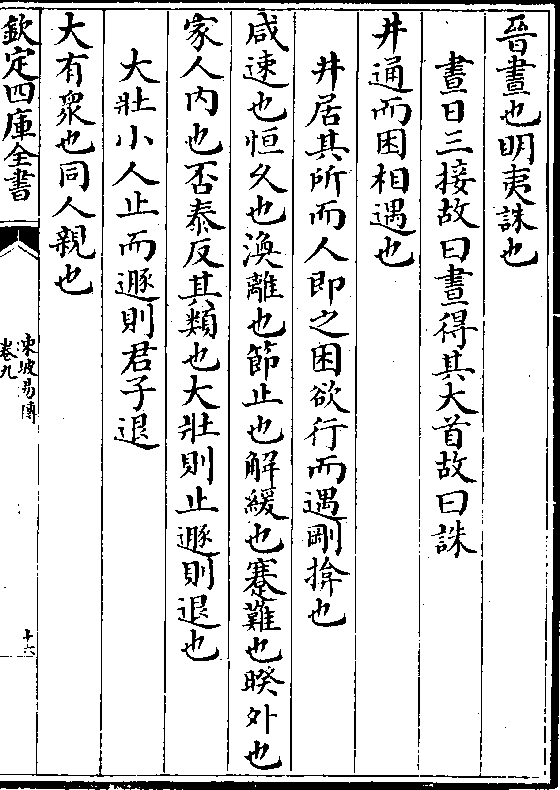 晉晝也明夷誅也
晝日三接故曰晝得其大首故曰誅
井通而困相遇也
井居其所而人即之困欲行而遇剛揜也
咸速也恒久也渙離也節止也解緩也蹇難也睽外也
家人内也否泰反其類也大壯則止遯則退也
大壯小人止而遯則君子退
大有衆也同人親也
欽定四庫全書
東坡易傳
卷九
十六